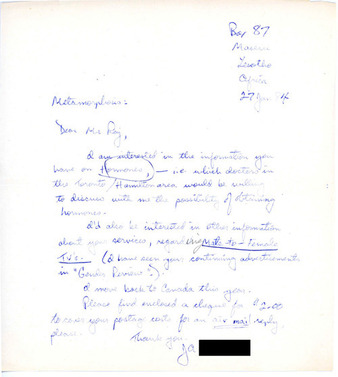 Box 87
Maseru
Lesotho
Africa
27 Jan 84
Metamorphosis:
Dear Mr Roy,
I am interested in the information you
have on Hormones, — i.e. which doctors in
the Toronto/Hamilton area would be willing
to discuss with me the possibility of obtaining
hormones.
I'd also be interested in other information
about your services, regarding male-to-female
T.V.'s. (I have seen your continuing advertisements
in "Gender Review").
I move back to Canada this year.
Please find enclosed a cheque for $2.00
to cover your postage costs for an air mail reply,
please.
Thank you,
JA